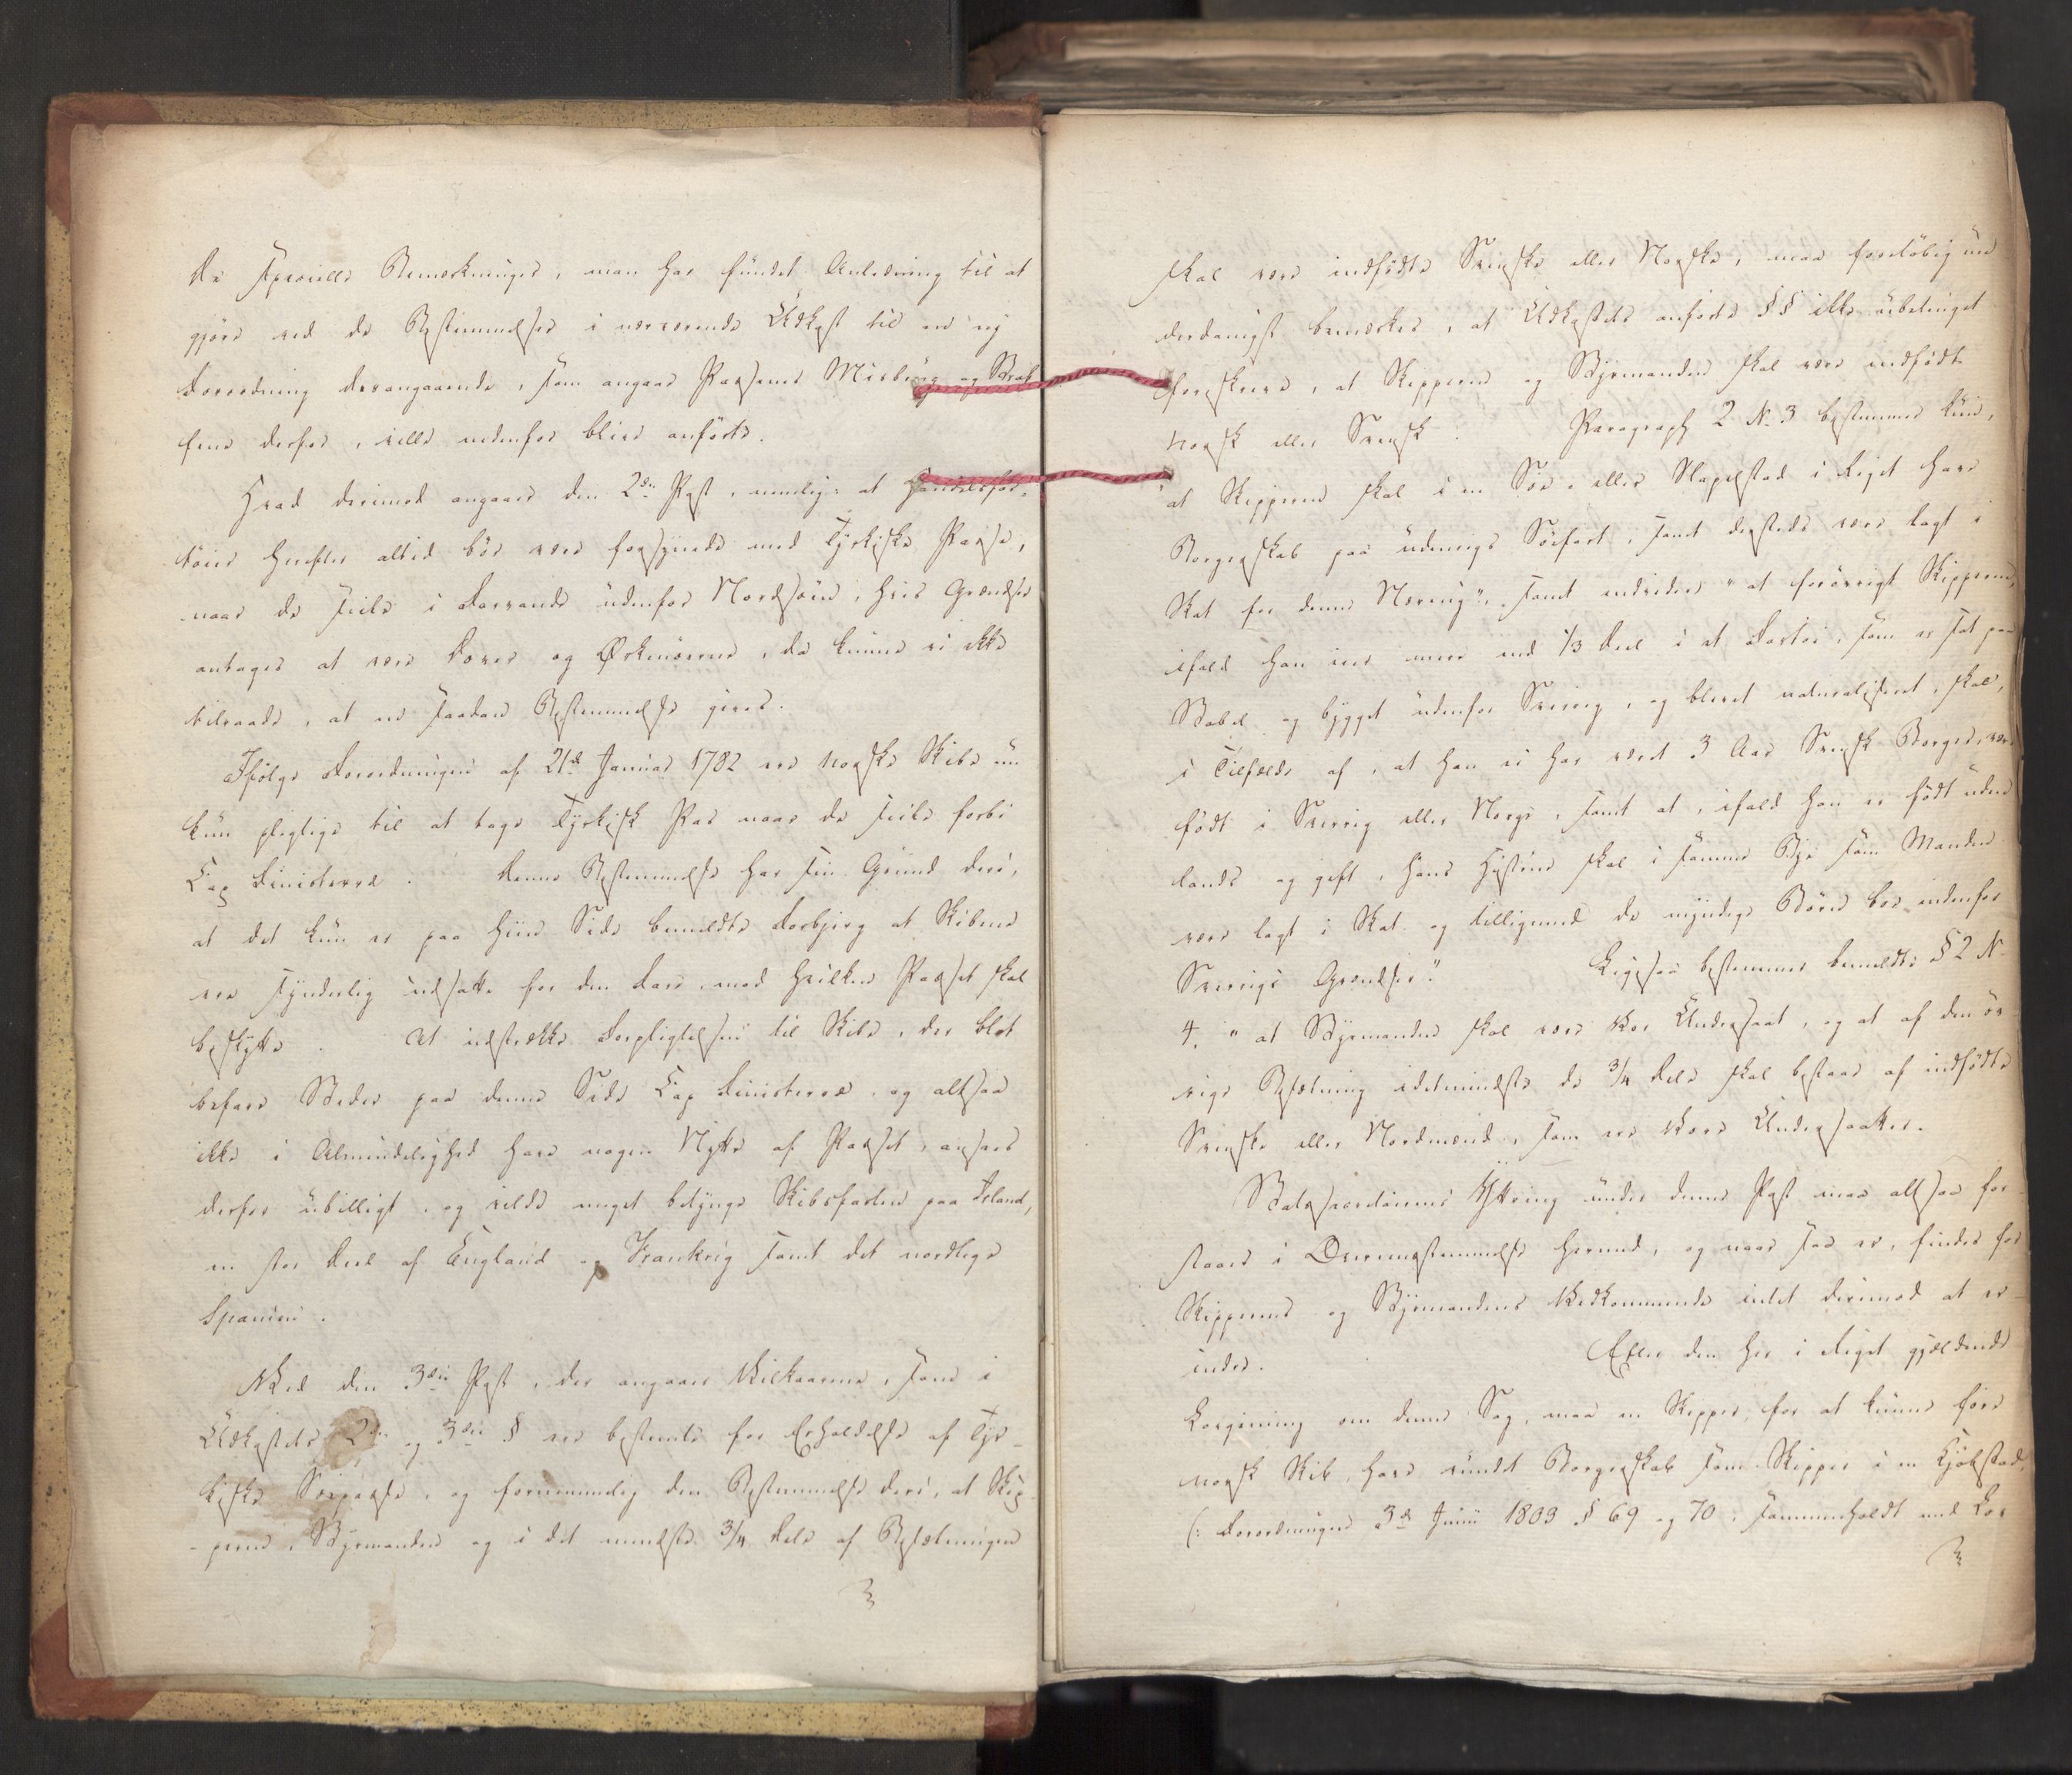 De specielle Bemærkninger, man har fundet Anledning til at
gjøre ved de Bestemmelser i nærværende Udkast til en ny
Forordning derangaaende, som angaae Passenes Misbrug og Straf
fene derfor, ville nedenfor blive anførte.
Hvad derimod angaaer den 2den Post, nemlig: at Handelsfar-
tøier herefter altid bør være forsynede med Tyrkiske Passe,
naar de seile i Farvande udenfor Nordsøen, hvis Grændser
antages at være Dover og Ørkenøerne, da kunne vi ikke
tilraade, at en saadan Bestemmelse gives.
Ifølge Forordningen af 21de Januar 1782 ere norske Skibe nu
kun pligtige til at tage Tyrkisk Pas naar de seile forbi
Cap Finisterræ. Denne Bestemmelse har sin Grund deri,
at det kun er paa hiin Side bemeldte Forbjerg at Skibene
ere synderlig udsatte for den Fare, mod hvilken Passet skal
beskytte. At udstrække Forpligtelsen til Skibe, der blot
befare Steder paa denne Side Cap Finisterræ, og altsaa
ikke i Almindelighed have nogen Nytte af Passet, ansees
derfor ubilligt, og vilde meget betynge Skibsfarten paa Irland,
en stor Deel af England og Frankrig samt det nordlige
Spanien.
Ved den 3die Post, der angaaer Vilkaarene, som i
Udkastets 2den og 3die § ere bestemte for Erholdelse af Tyr-
kiske Søepasse, og fornemmelig den Bestemmelse deri, at Skip
-peren, Styrmanden og i det mindste 3/4 Dele af Besætningen
skal være indfødte Svenske eller Norske, maa foreløbig un
derdanigst bemærkes, at Udkastets anførte §§ ikke ubetinget
foreskrive, at Skipperen og Styrmanden skal være indfødt
norsk eller Svensk. Paragraph 2 No 3 bestemmer kun,
"at Skipperen skal i en Søe- eller Stapelstad i Riget have
Borgerskab paa udenrigs Søefart, samt dersteds være lagt i
Skat for denne Næring", samt endvidere "at forøvrigt Skipperen,
ifald han eier mere end 1/3 Deel i et Fartøi, som er sat paa
Stabel og bygget udenfor Sverrig, og blevet naturaliseret, skal,
i Tilfælde af, at han ei har været 3 Aar Svensk Borger, være
født i Sverrig eller Norge, samt at, ifald han er født uden
lands og gift, hans Hustrue skal i samme Bye som Manden
være lagt i Skat og tilligemed de umyndige Børn boe indenfor
Sverrigs Grændser." Ligesaa bestemmer bemeldte § 2 No
4, "at Styrmanden skal være Vor Undersaat, og at af den øv
rige Besætning idetmindste de 3/4 Dele skal bestaae af indfødte
Svenske eller Nordmænd, som ere Vore Undersaatter.
Statssecretairens Yttring under denne Post maa altsaa for
staaes i Overeensstemmelse hermed, og naar saa er, findes for
Skipperens og Styrmandens Vedkommende intet derimod at er-
indre. Efter den her i Riget gjældende
Lovgivning om denne Sag, maa en Skipper, for at kunne føre
norsk Skib, have vundet Borgerskab som Skipper i en Kjøbstad,
(: Forordningen 3die Junii 1803 § 69 og 70: sammenholdt med Lov